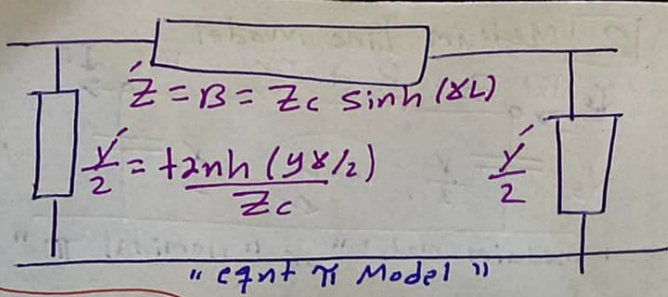 Z' = B = Zc sinh (γL)
Y'/2 = tanh (yγ/2) / Zc
Y'/2
"eqnt π Model"